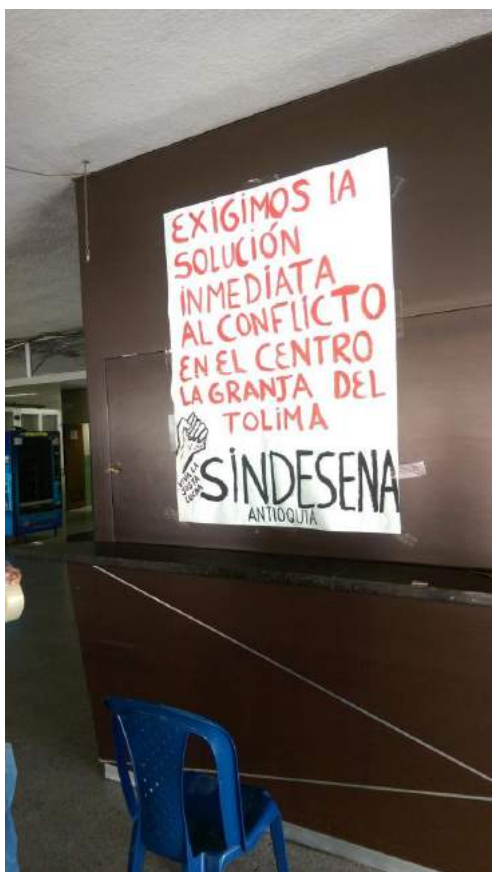 EXIGIMOS LA
SOLUCIÓN
INMEDIATA
AL CONFLICTO
EN EL CENTRO
LA GRANJA DEL
TOLIMA
VIVA LA
JUSTA
LUCHA
SINDESENA
ANTIOQUIA